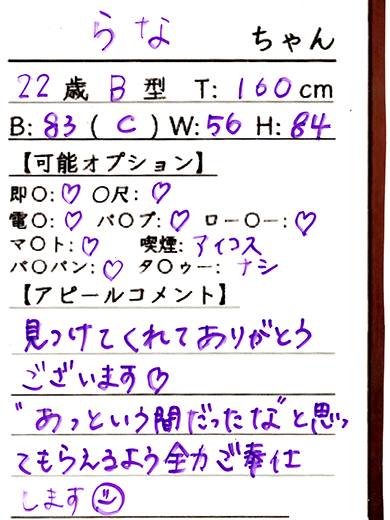 らな ちゃん
22歳 B型 T: 160cm
B: 83 (C) W: 56 H: 84
【可能オプション】
即〇: ♡ 〇尺: ♡
電〇: ♡ バ〇ブ: ♡ ロー〇ー: ♡
マ〇ト: ♡ 喫煙: アイコス
パ〇パン: ♡ タ〇ゥー: ナシ
【アピールコメント】
見つけてくれてありがとう
ございます♡
"あっという間だったな"と思っ
てもらえるよう全力ご奉仕
します☺